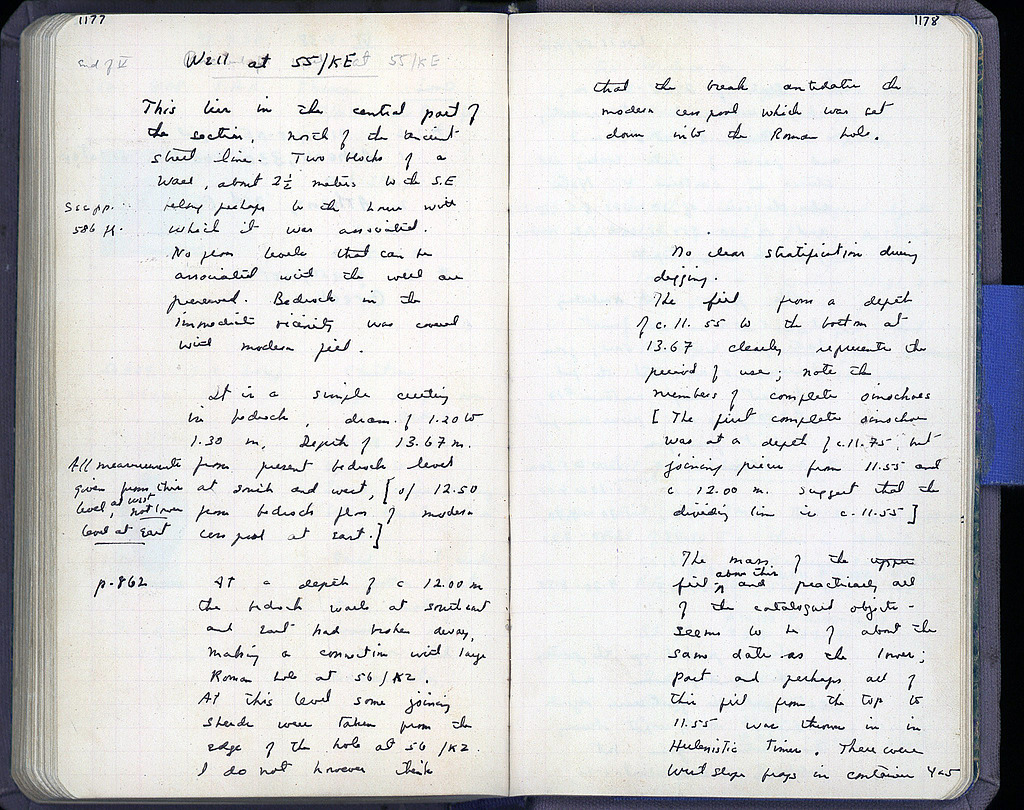 1177
End of V
Well at 55/KE
This lies in the central part of
the section, north of the ancient
street line. Two blocks of a
wall, about 2½ meters to the S.E
See pp.
586 ff.
relay perhaps to the house with
which it was associated.
No floor levels that can be
associated with the well are
preserved. Bedrock in the
immediate vicinity was covered
with modern fill.
It is a simple cutting
in bedrock, diam. of 1.20 to
1.30 m. Depth of 13.67 m.
All measurements
given from this
level, at west
not from
level at East
from present bedrock level
at south and west, [of 12.50
from bedrock floor of modern
cess pool at east.]
p. 862
At a depth of c 12.00 m
the bedrock walls at southeast
and East had broken away,
making a connection with large
Roman hole at 56/KZ.
At this level some joining
sherds were taken from the
edge of the hole at 56/KZ.
I do not however think
1178
that the break antedates the
modern cess pool which was set
down into the Roman hole.
No clear stratification during
digging.
The fill from a depth
of c. 11.55 to the bottom at
13.67 clearly represents the
period of use; note the
numbers of complete oinochoes
[The first complete oinochoe
was at a depth of c. 11.75, but
joining pieces from 11.55 and
c 12.00 m. suggest that the
dividing line is c. 11.55]
The mass of the upper
fill above this and practically all
of the catalogued objects -
seems to be of about the
same date as the lower;
part and perhaps all of
this fill from the top to
11.55 was thrown in in
Hellenistic Times. There were
West slope frags in container 4 a5